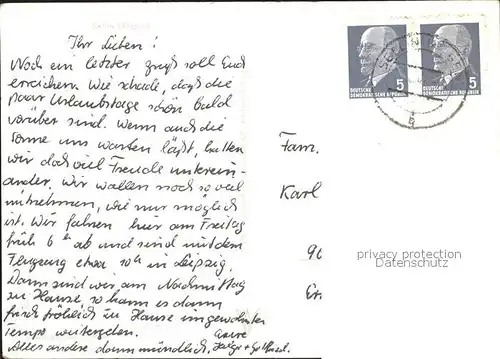 Ihr Lieben!
Noch ein letzter Gruß soll Euch
erreichen. Wie schade, daß die
paar Urlaubstage schon bald
vorüber sind. Wenn auch die
Sonne uns warten läßt, hatten
wir doch viel Freude unterein-
ander. Wir wollen noch so viel
mitnehmen, wie nur möglich
ist. Wir fahren hier am Freitag
früh 6 h ab und sind mit dem
Flugzeug etwa 10 h in Leipzig.
Dann sind wir am Nachmittag
zu Hause, so kann es dann
frisch fröhlich zu Hause im gewohnten
Tempo weitergehen. Eure
Alles andere dann mündlich, Helga +
DEUTSCHE
DEMOKRATISCHE REPUBLIK
5
DEUTSCHE
DEMOKRATISCHE REPUBLIK
5
Fam.
Karl
privacy protection
Datenschutz